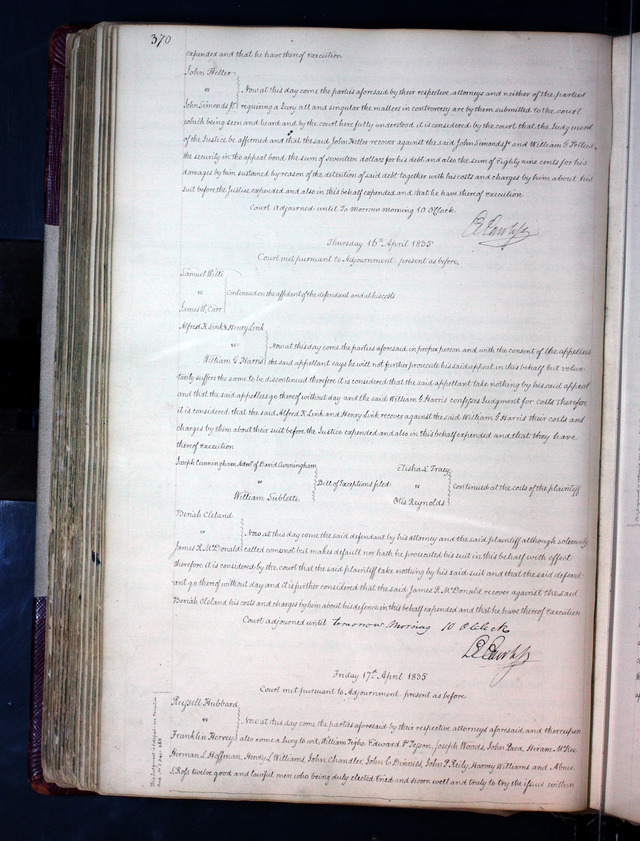 370
expended and that he have thereof execution
John Heller
vs
Now at this day come the parties aforesaid by their respective attorneys and neither of the parties
John Simonds Jr requiring a Jury all and singular the matters in controversy are by them submitted to the court
which being seen and heard and by the court here fully understood it is considered by the court that the Judgment
of the Justice be affirmed and that the said John Heller recover against the said John Simonds Jr and William G
the security in the appeal bond the sum of seventeen dollars for his debt and also the sum of Eighty nine cents for his
damages by him sustained by reason of the detention of said debt together with his costs and charges by him about his
suit before the Justice expended and also in this behalf expended and that he have thereof execution
Court Adjourned until To Morrow morning 10 OClock
Thursday 16th April 1835
Court met pursuant to Adjournment present as before,
Samuel
vs
Continued on the affidavit of the defendant and at his costs
James W, Carr
Alfred R Link & Henry Link
vs
Now at this day come the parties aforesaid in proper person and with the consent of the appellees
William G Harris the said appellant says he will not further prosecute his said appeal in this behalf but volun-
tarily suffers the same to be discontinued therefore it is considered that the said appellant take nothing by his said appeal
and that the said appellees go thereof without day and the said William G Harris confesses Judgment for costs Therefore
it is considered that the said Alfred R Link and Henry Link recover against the said William G Harris their costs and
charges by them about their suit before the Justice expended and also in this behalf expended and that they have
thereof execution
Joseph Cunningham Admr of David Cunningham
vs
Bill of Exceptions filed
William Sublette
Elisha L Tracy
vs
Continued at the costs of the plaintiff
Otis Reynolds
Beriah Cleland
vs
Now at this day come the said defendant by his attorney and the said plaintiff although solemnly
James R McDonald called comes not but makes default nor hath he prosecuted his suit in this behalf with effect
therefore it is considered by the court that the said plaintiff take nothing by his said suit and that the said defend-
ant go thereof without day and it is further considered that the said James R McDonald recover against the said
Beriah Cleland his costs and charges by him about his defence in this behalf expended and that he have thereof execution
Court adjourned until tomorrow Morning 10 Oclock
Friday 17th April 1835
Court met pursuant to Adjournment present as before
Russell Hubbard
vs
Now at this day come the parties aforesaid by their respective attorneys aforesaid and thereupon
Franklin Hervey also come a Jury to wit, William Edward P Joseph Woods, John Hiram
Herman L Hoffman, Henry L Williams, John Chandler, John C Dinnies, John P Reily, Harvey Williams and Abner
Ross twelve good and lawful men who being duly elected tried and sworn well and truly to try the issue within